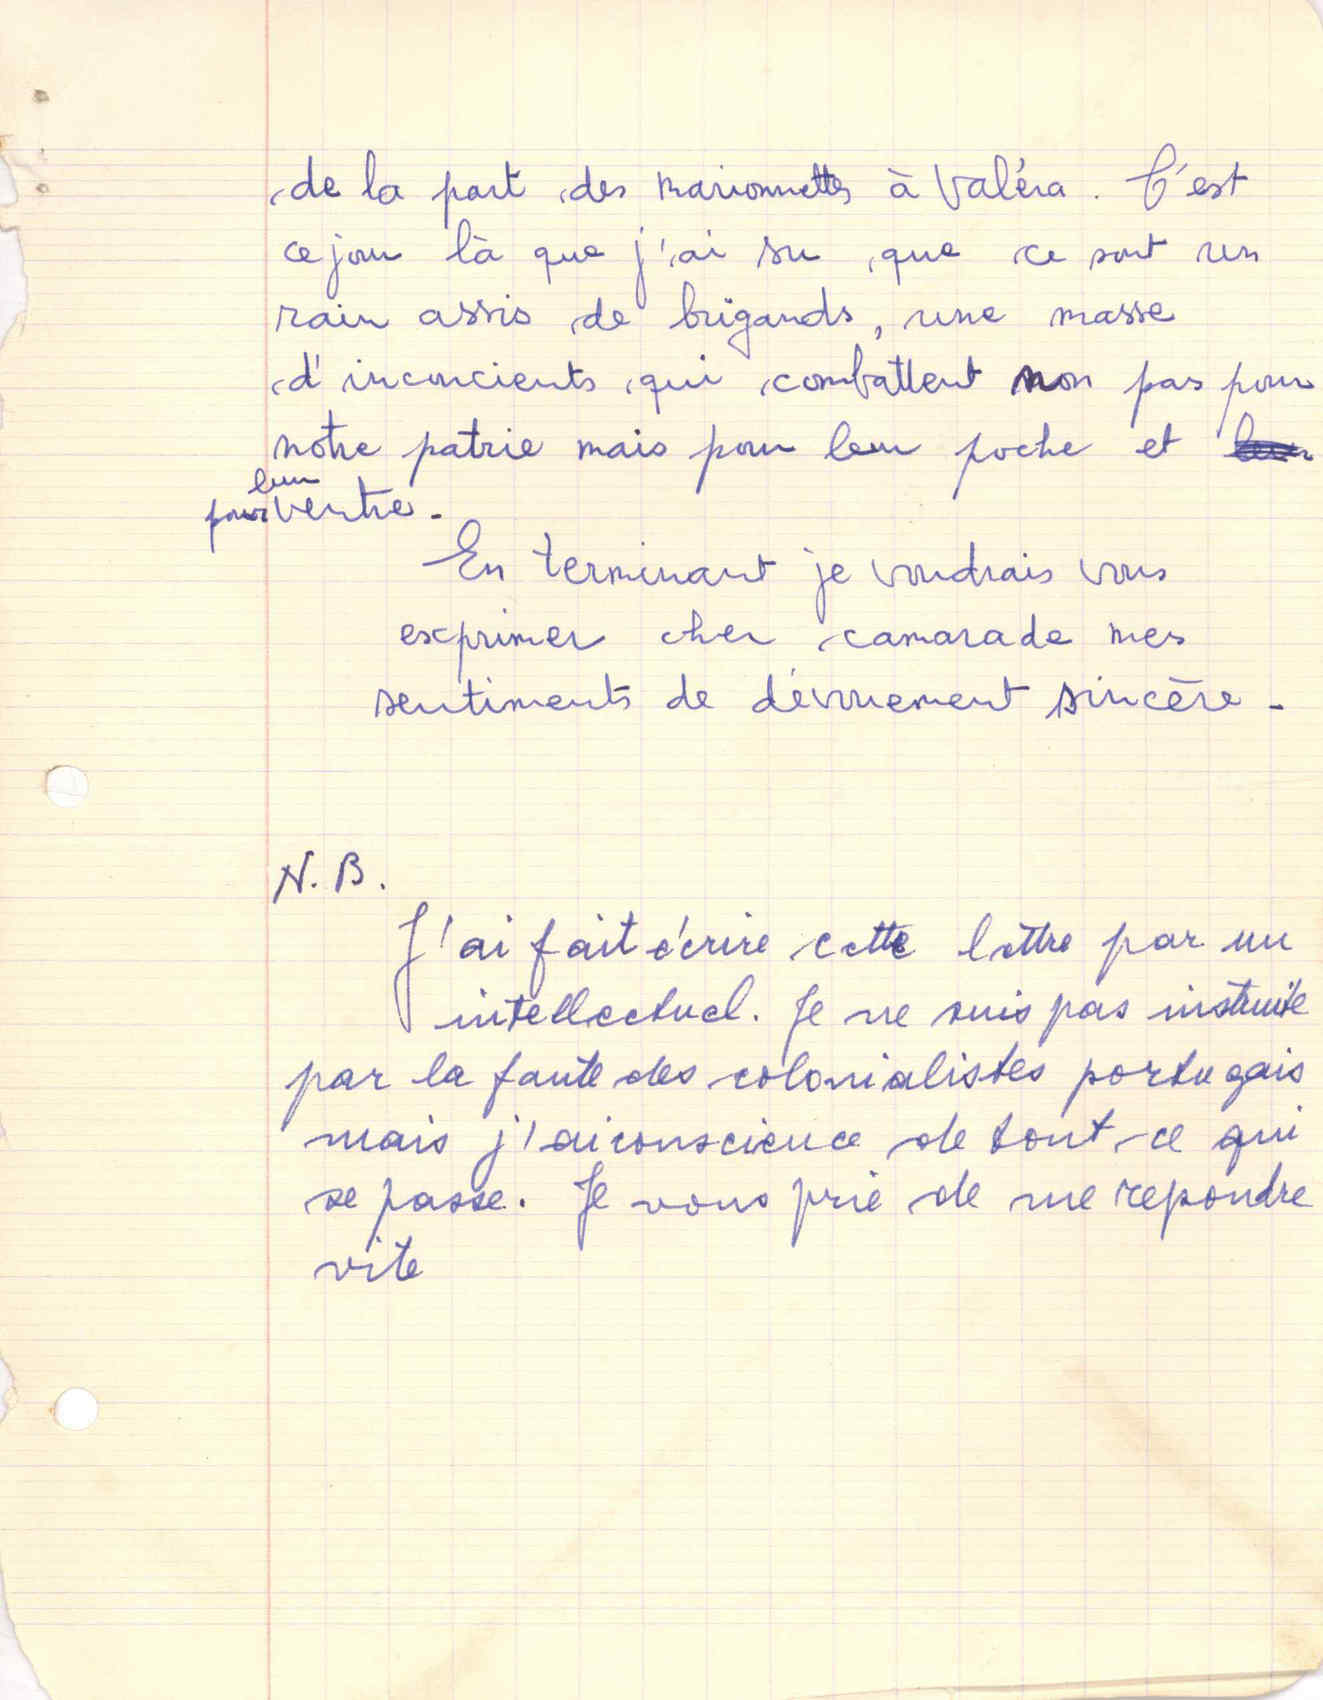 de la part des marionnettes à Valéra. C'est
ce jour là que j'ai su que ce sont un
rain assis de brigands, une masse
d'inconcients qui combattent non pas pour
notre patrie mais pour leur poche et
pour leur ventre.
En terminant je voudrais vous
exprimer cher camarade mes
sentiments de dévouement sincère.
N.B.
J'ai fait écrire cette lettre par un
intellectuel. Je ne suis pas instruite
par la faute des colonialistes portugais
mais j'ai conscience de tout ce qui
se passe. Je vous prie de me repondre
vite